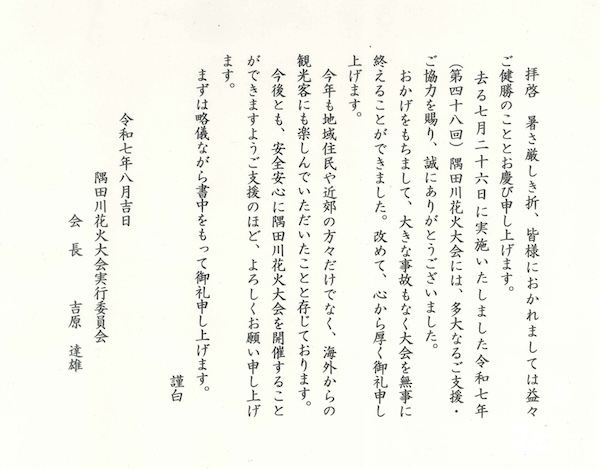 拝啓　暑さ厳しき折、皆様におかれましては益々
ご健勝のこととお慶び申し上げます。
去る七月二十六日に実施いたしました令和七年
（第四十八回）隅田川花火大会には、多大なるご支援・
ご協力を賜り、誠にありがとうございました。
おかげをもちまして、大きな事故もなく大会を無事に
終えることができました。改めて、心から厚く御礼申し
上げます。
今年も地域住民や近郊の方々だけでなく、海外からの
観光客にも楽しんでいただいたことと存じております。
今後とも、安全安心に隅田川花火大会を開催すること
ができますようご支援のほど、よろしくお願い申し上げ
ます。
まずは略儀ながら書中をもって御礼申し上げます。
謹白
令和七年八月吉日
隅田川花火大会実行委員会
会　長　　吉原　達雄